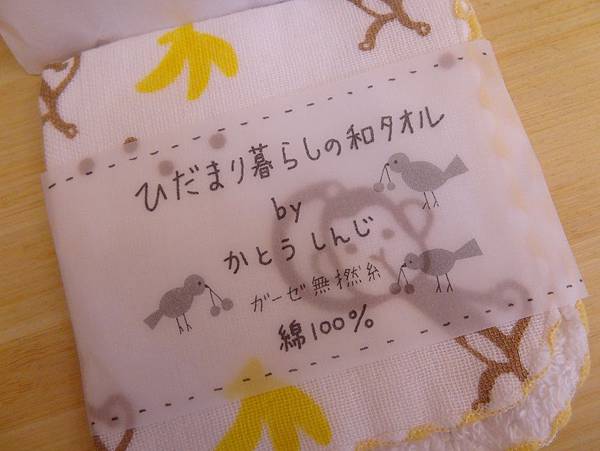 ひだまり暮らしの和タオル
by
かとうしんじ
ガーゼ無撚糸
綿100%